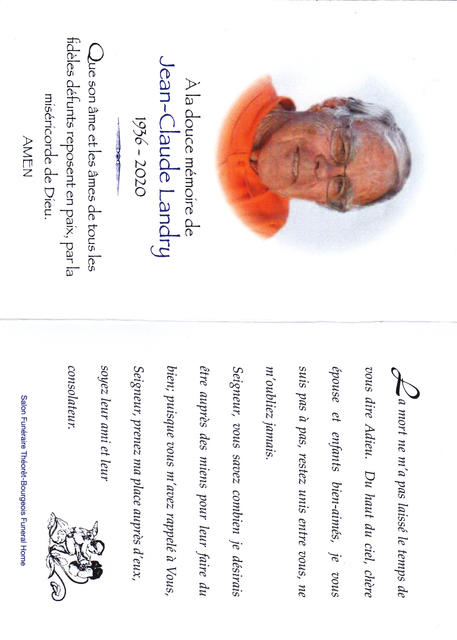 À la douce mémoire de
Jean-Claude Landry
1936 - 2020
Que son âme et les âmes de tous les
fidèles défunts reposent en paix, par la
miséricorde de Dieu.
AMEN
La mort ne m'a pas laissé le temps de
vous dire Adieu. Du haut du ciel, chère
épouse et enfants bien-aimés, je vous
suis pas à pas, restez unis entre vous, ne
m'oubliez jamais.
Seigneur, vous savez combien je désirais
être auprès des miens pour leur faire du
bien; puisque vous m'avez rappelé à Vous,
Seigneur, prenez ma place auprès d'eux,
soyez leur ami et leur
consolateur.
Salon Funéraire Théorêt-Bourgeois Funeral Home